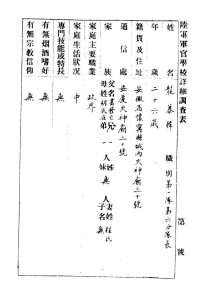 陸軍軍官學校詳細調查表 第 號
姓名 龍慕韓 職別 第一隊第六分隊長
年歲 二十六歲
籍貫及住址 安徽省懷寧縣城內大神廟三十號
通信處 安慶大神廟三十號
家族 父名 母姓胡氏 兄弟一人 姊妹無人 妻姓程氏 子女名無
家庭主要職業 政界
家庭生活狀況 中
專門技能或特長 無
有無烟酒嗜好 無
有無宗教信仰 無